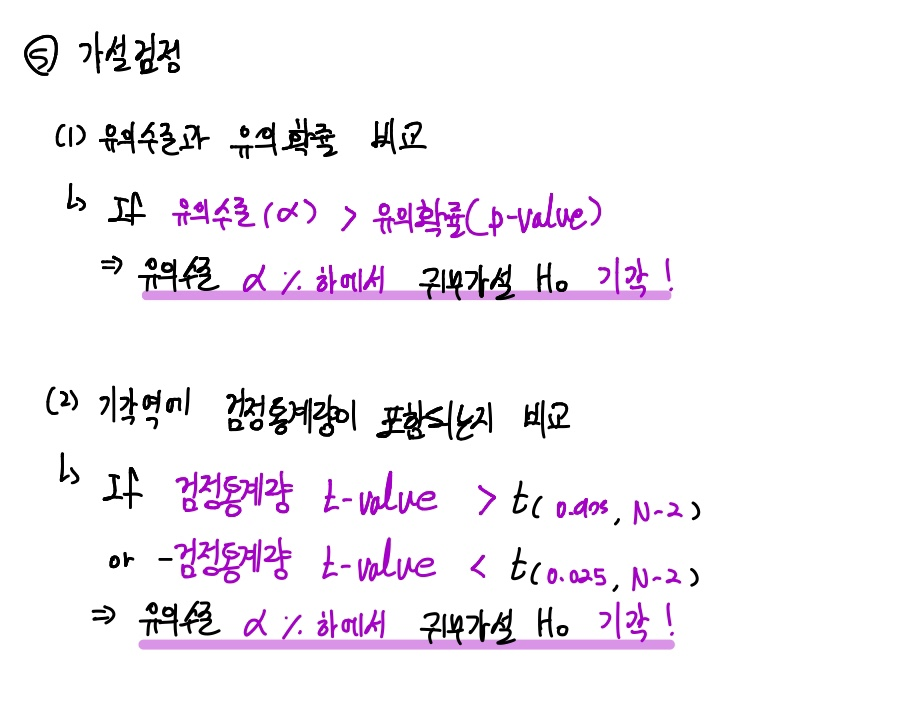 ⑤ 가설검정
(1) 유의수준과 유의확률 비교
↳ If 유의수준(α) > 유의확률(p-value)
⇒ 유의수준 α % 하에서 귀무가설 H₀ 기각!
(2) 기각역에 검정통계량이 포함되는지 비교
↳ If 검정통계량 t-value > t(0.975, N-2)
or -검정통계량 t-value < t(0.025, N-2)
⇒ 유의수준 α % 하에서 귀무가설 H₀ 기각!